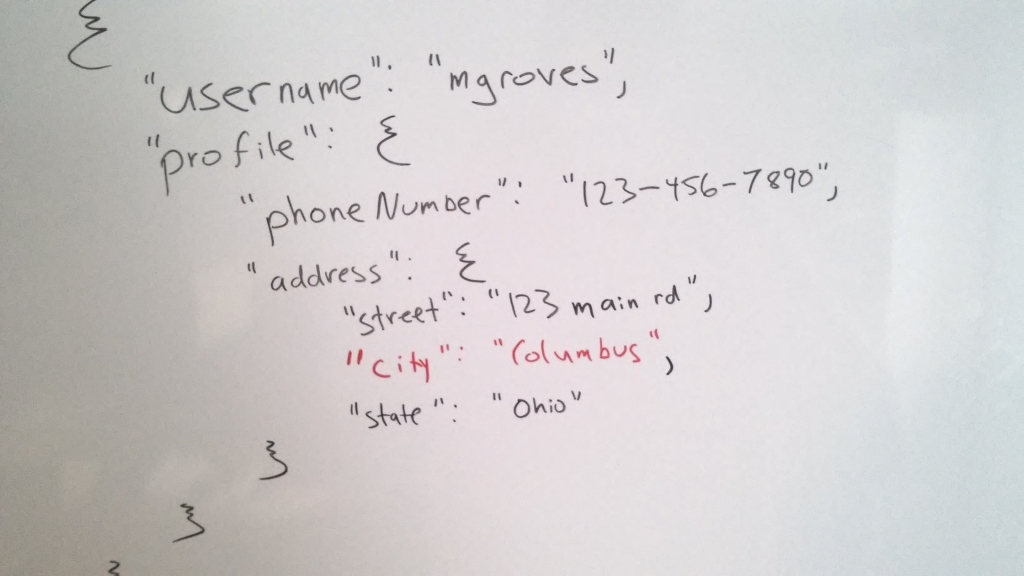 {
"username": "mgroves",
"profile": {
"phoneNumber": "123-456-7890",
"address": {
"street": "123 main rd",
"city": "Columbus",
"state": "Ohio"
}
}
}